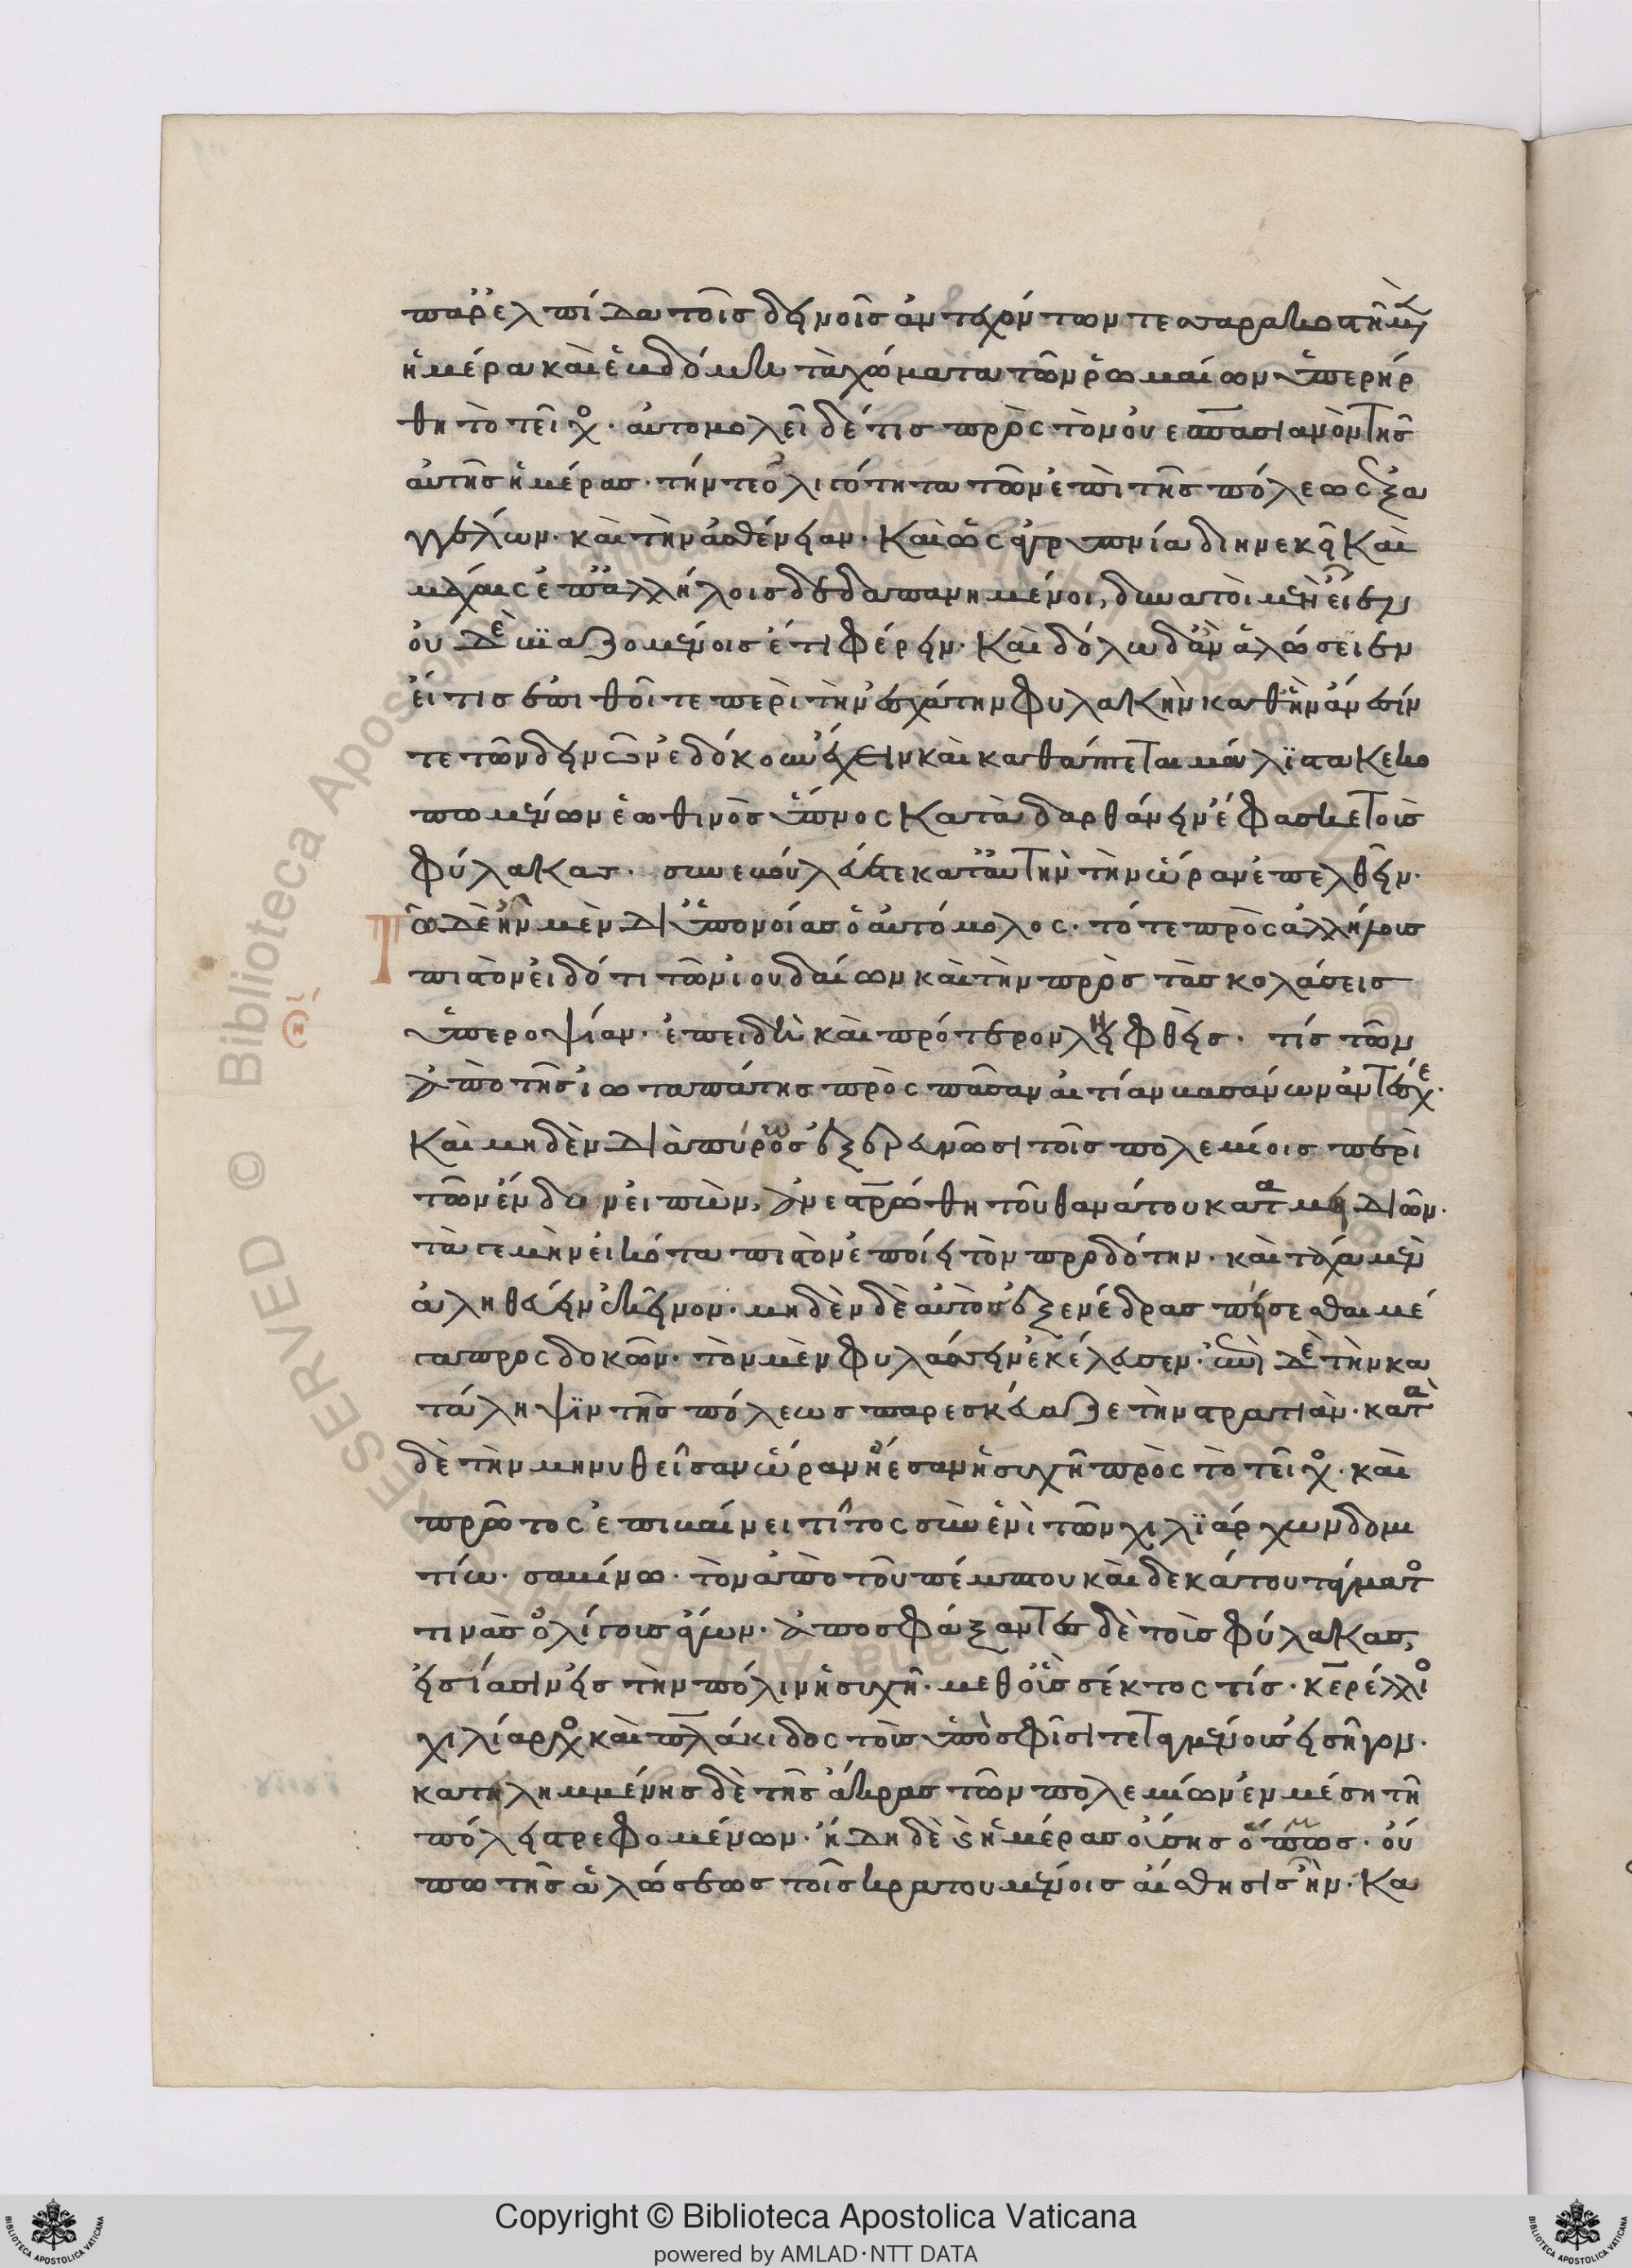 παρ' ἐλπίδα τοῖς δεινοῖς ἀντεχόντων τεσσαρακοστῇ μὲν
ἡμέρα καὶ ἑβδόμη τὰ χώματα τῶν ῥωμαίων ὑπερήρ
θη τὸ τεῖχος. αὐτομολεῖ δέ τις πρὸς τὸν οὐεσπασιανὸν τῆς
αὐτῆς ἡμέρας. τήν τε ὀλιγότητα τῶν ἐπὶ τῆς πόλεως ἐξα
γγέλλων. καὶ τὴν ἀσθένειαν. καὶ ὡς ἀγρυπνία διηνεκεῖ καὶ
μάχαις ἐπαλλήλοις δεδαπανημένοι, δυνατοὶ μὲν εἶεν
οὐδὲ βιαζομένοις ἔτι φέρειν. καὶ δόλω δ' ἂν ἁλώσειεν
εἴ τις ἐπιθοῖτο περὶ τὴν ἐσχάτην φυλακὴν καθ' ἣν ἄνεσίν
τε τῶν δεινῶν ἐδόκουν ἔχειν καὶ καθάπτεται μάλιστα κεκο
πωμένων ἑωθινὸς ὕπνος καταδαρθάνειν ἔφασκε τοὺς
φύλακας. συνεβούλευέ τε κατ' αὐτὴν τὴν ὥραν ἐπελθεῖν.
Τῷ δὲ ἦν μὲν δι' ὑπονοίας ὁ αὐτόμολος. τό τε πρὸς ἀλλήλους
πιστὸν εἰδότι τῶν ἰουδαίων καὶ τὴν πρὸς τὰς κολάσεις
ὑπεροψίαν. ἐπειδὴ καὶ πρότερον ληφθείς. τίς τῶν
ἀπὸ τῆς ἰωταπάτης πρὸς πᾶσαν αἰτίαν βασάνων ἀντέσχε.
καὶ μηδὲν διὰ πυρὸς ἐξερευνῶσι τοῖς πολεμίοις περὶ
τῶν ἔνδον εἰπών, ἀνεσταυρώθη τοῦ θανάτου καταμειδιῶν.
τά γε μὴν εἰκότα πιστὸν ἐποίει τὸν προδότην. καὶ τάχα μὲν
ἀληθεύειν ἐκεῖνον. μηδὲν δὲ αὐτὸς ἐξ ἐνέδρας πείσεσθαι μέ
γα προσδοκῶν. τὸν μὲν φυλάσσειν ἐκέλευσεν. ἐπὶ δὲ τὴν κα
τάληψιν τῆς πόλεως παρεσκεύαζε τὴν στρατιάν. κατὰ
δὲ τὴν μηνυθεῖσαν ὥραν ᾔεσαν ἡσυχῆ πρὸς τὸ τεῖχος. καὶ
πρῶτος ἐπιβαίνει τίτος σὺν ἑνὶ τῶν χιλιάρχων δομι
τίω. σαβίνω. τῶν ἀπὸ τοῦ πέμπτου καὶ δεκάτου τάγματος
τινὰς ὀλίγους ἄγων. ἀποσφάξαντες δὲ τοὺς φύλακας,
εἰσίασιν εἰς τὴν πόλιν ἡσυχῆ. μεθ' οὓς σέκτος τίς. κερέλλιος
χιλίαρχος καὶ πλάκιδος τοὺς ὑπὸ σφίσι τεταγμένους εἰσῆγον.
κατειλημμένης δὲ τῆς ἄκρας τῶν πολεμίων ἐν μέση τῆ
πόλει στρεφομένων. ἤδη δὲ ἡμέρας οὔσης ὅμως. οὔ
πω τῆς ἁλώσεως τοῖς κρατουμένοις αἴσθησις ἦν. κα
Copyright © Biblioteca Apostolica Vaticana
powered by AMLAD·NTT DATA